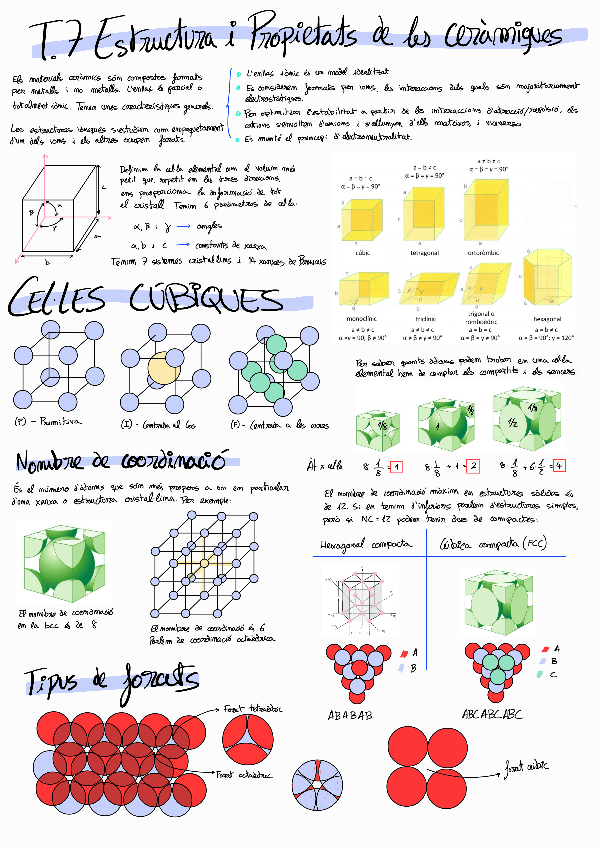 T.7 Estructura i Propietats de les ceràmiques
Els materials ceràmics són compostos formats
per metalls i no metalls. L'enllaç és parcial o
totalment iònic. Tenim unes característiques generals.
Les estructures iòniques s'estudien com empaquetament
d'un dels ions i els altres ocupen forats.
L'enllaç iònic és un model idealitzat
Es consideren formats per ions, les interaccions dels quals son majoritàriament
electrostàtiques.
Per optimitzar l'estabilitat a partir de les interaccions d'atracció/repulsió, els
cations s'envolten d'anions i s'allunyen d'ells mateixos, i viceversa.
Es manté el principi d'electroneutralitat.
Definim la cel·la elemental com el volum més
petit que, repetit en les tres direccions,
ens proporciona la informació de tot
el cristall. Tenim 6 paràmetres de cel·la:
α, β i γ → angles
a, b i c → constants de xarxa
Tenim 7 sistemes cristal·lins i 14 xarxes de Bravais
β α γ
c
a
b
a = b = c
α = β = γ = 90°
a = b ≠ c
α = β = γ = 90°
a ≠ b ≠ c
α = β = γ = 90°
cúbic
tetragonal
ortoròmbic
monoclínic
a ≠ b ≠ c
α = γ = 90; β ≠ 90°
triclínic
a ≠ b ≠ c
α ≠ β ≠ γ ≠ 90°
trigonal o
romboèdric
a = b = c
α = β = γ ≠ 90°
hexagonal
a = b ≠ c
α = β = 90°; γ = 120°
CEL·LES CÚBIQUES
(P) - Primitiva
(I) - Centrada al cos
(F) - Centrada a les cares
Per saber quants àtoms podem trobar en una cel·la
elemental hem de comptar els compartits i els sencers
1/8
1
1/8
1/2
1/8
Àt x cel·la
8·1/8 = 1
8·1/8 + 1 = 2
8·1/8 + 6·1/2 = 4
Nombre de coordinació
És el número d'àtoms que són més propers a un en particular
d'una xarxa o estructura cristal·lina. Per exemple:
El nombre de coordinació
en la bcc és de 8
El nombre de coordinació és 6
Parlem de coordinació octaèdrica
El nombre de coordinació màxim en estructures sòlides és
de 12. Si en tenim d'inferiors parlem d'estructures simples,
però si NC = 12 podem tenir dues de compactes:
Hexagonal compacta
Cúbica compacta (FCC)
A
B
A
B
C
ABABAB
ABCABCABC
Tipus de forats
Forat tetraèdric
Forat octaèdric
forat cúbic